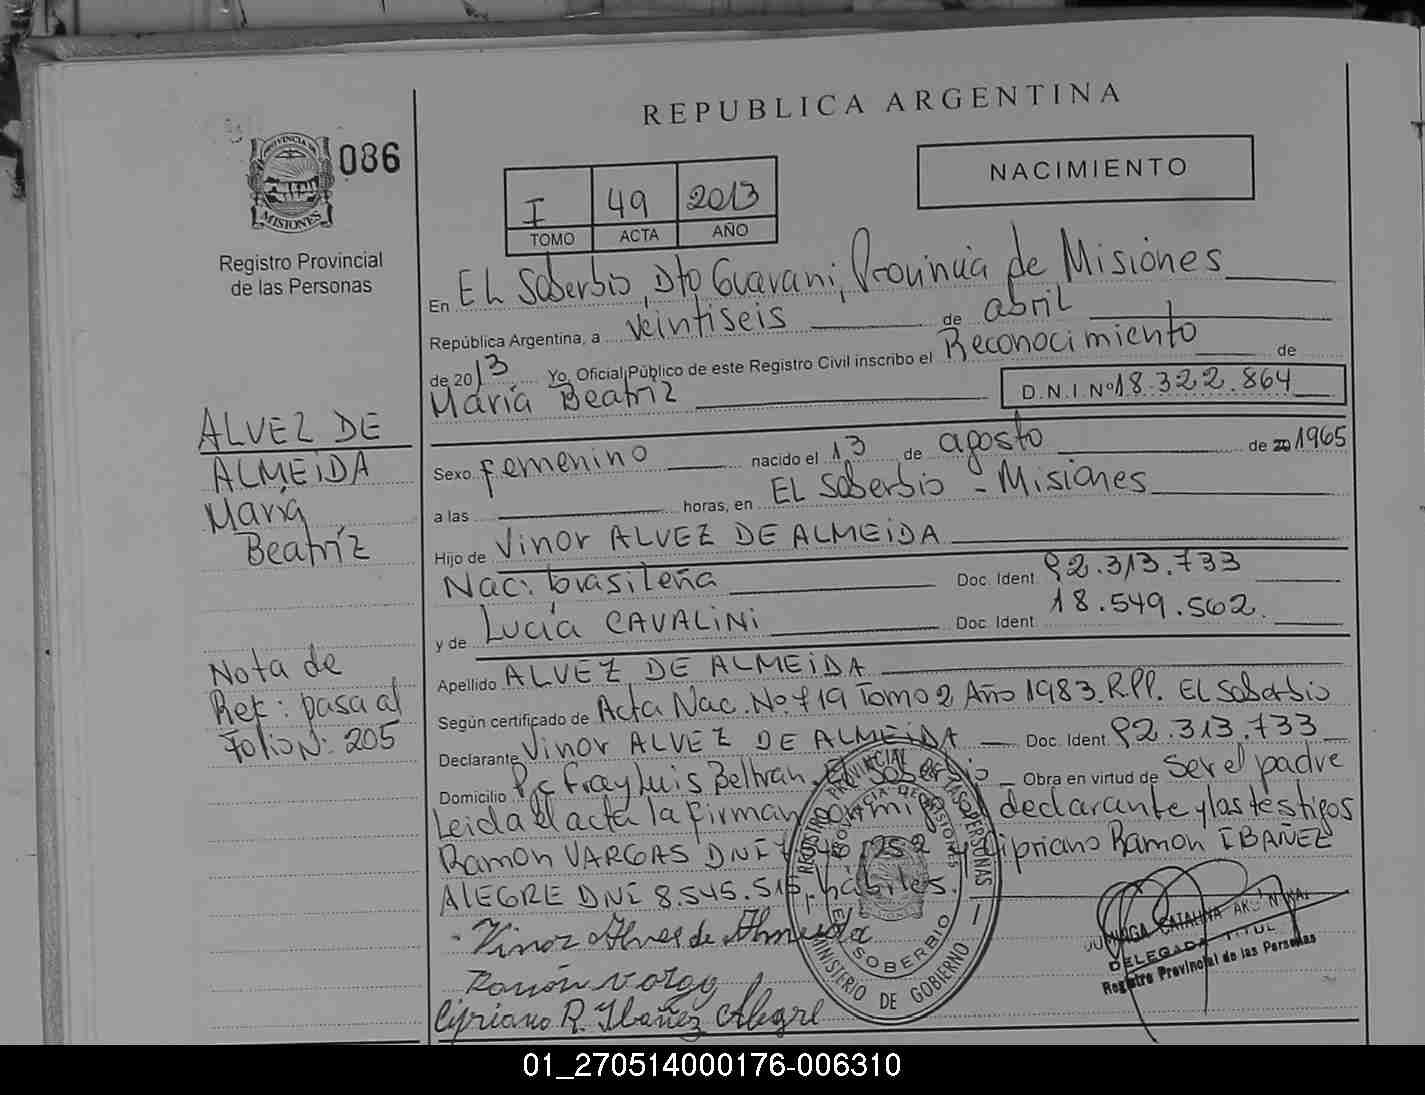 REPUBLICA ARGENTINA
086
PROVINCIA DE
MISIONES
Registro Provincial
de las Personas
NACIMIENTO
I 49 2013
TOMO ACTA AÑO
En EL Soberbio, Dto Guarani, Provincia de Misiones
República Argentina, a veintiseis de abril
de 2013 Yo, Oficial Público de este Registro Civil inscribo el Reconocimiento de
María Beatriz D.N.I.Nº18.322.864
ALVEZ DE
ALMEIDA
María
Beatríz
Sexo femenino nacido el 13 de agosto de 20 1965
a las horas, en EL Soberbio - Misiones
Hijo de Vinor ALVEZ DE ALMEIDA
Nac: brasileña Doc. Ident. 92.313.733
y de Lucía CAVALINI Doc. Ident. 18.549.562.
Nota de
Ref: pasa al
Folio N: 205
Apellido ALVEZ DE ALMEIDA
Según certificado de Acta Nac. No. 719 Tomo 2 Año 1983. R.PP. EL Soberbio
Declarante Vinor ALVEZ DE ALMEIDA Doc. Ident. 92.313.733
Domicilio Pje Fray Luis Beltran, El Soberbio Obra en virtud de Ser el padre
Leida el acta la firman conmigo declarante y las testigos
Ramon VARGAS DNI y Cipriano Ramon IBAÑEZ
ALEGRE DNI 8.545.515, habiles.
Vinor Alves de Almeida
Ramón Vargas
Cipriano R. Ibañez Alegre
REGISTRO PROVINCIAL DE LAS PERSONAS
PROVINCIA DE MISIONES
EL SOBERBIO
MINISTERIO DE GOBIERNO
CATALINA
DELEGADA TITUL
Registro Provincial de las Personas
01_270514000176-006310